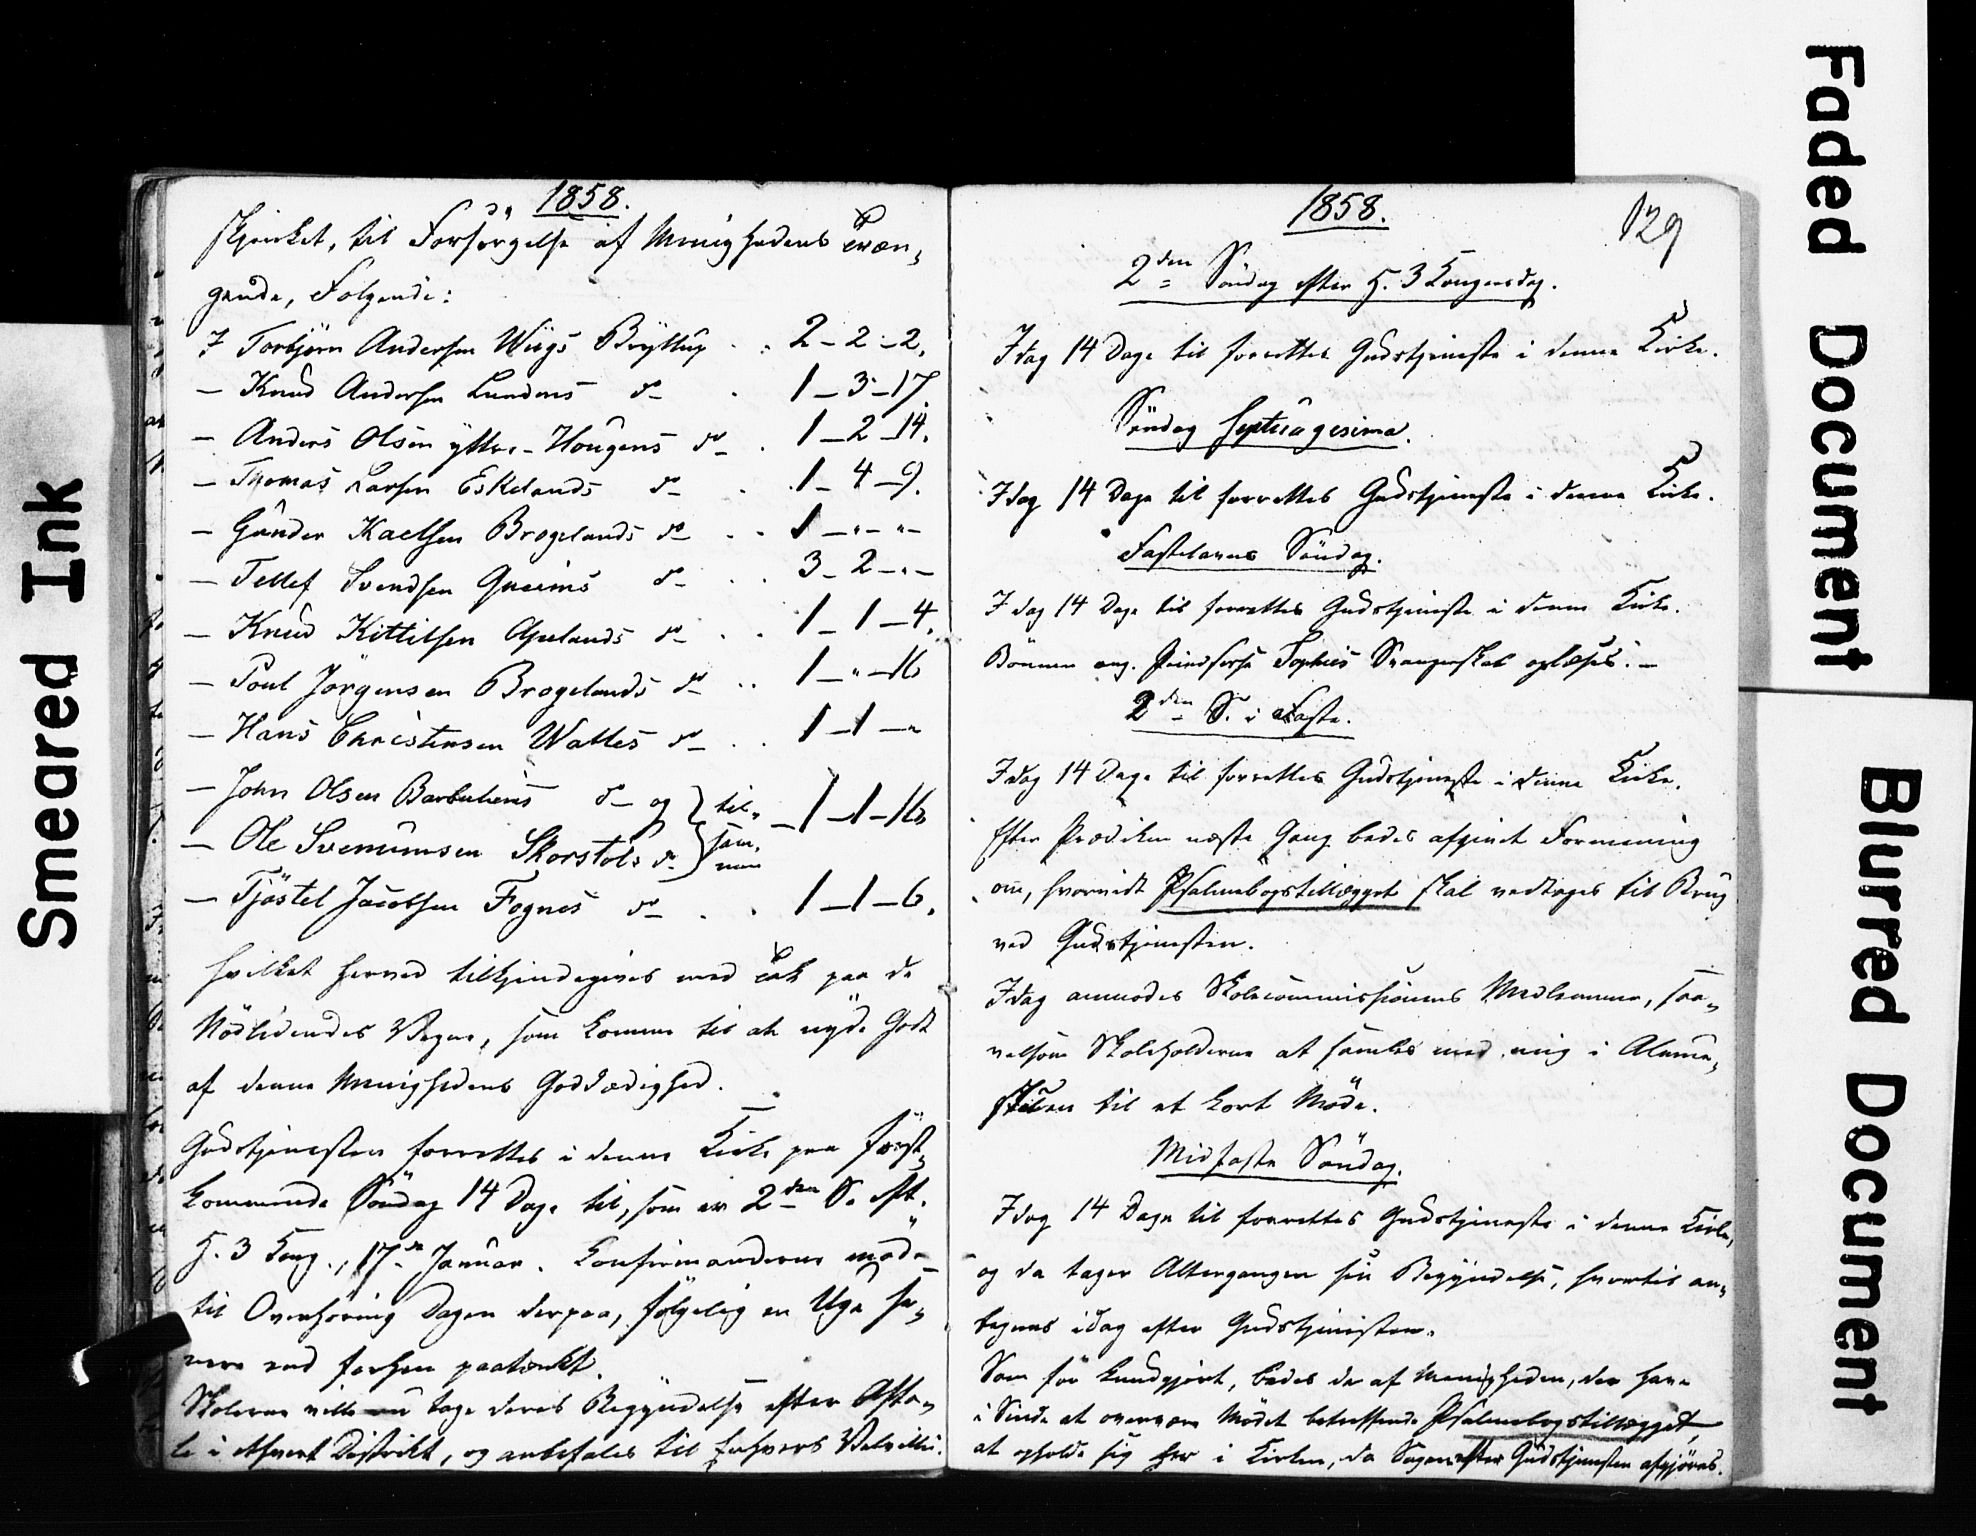 Smeared Ink
1858.
skjenket, til Forsørgelse af Menighedens Træn-
gende, Følgende:
I Torbjørn Andersen Wiigs Bryllup . . 2 - 2 - 2.
- Knud Andersen Lundens do . 1 - 3 - 17.
- Anders Olsen ytre-Hougens do . 1 - 2 - 14.
- Thomas Larsen Eskelands do . 1 - 4 - 9.
- Gunder Kaelsen Brogelands do . . 1 - " - "
- Tellef Svendsen Gneims do . . 3 - 2 - "
- Knud Kittilsen Apelands do . . 1 - 1 - 4.
- Poul Jörgensen Brogelands do . . 1 - " - 16
- Hans Christensen Walles do . . 1 - 1 - "
- John Olsen do og } til-
- Ole Svenumsen Skorstøls do } sam-men - 1 - 1 - 16
- Tjöstel Jacobsen Fognes do . . 1 - 1 - 6.
hvilket herved tilkjendegives med Tak paa de
Nødlidendes Vegne, som komme til at nyde Godt
af denne Menighedens Goddædighed.
Gudstjenesten forrettes i denne Kirke paa først-
kommende Söndag 14 Dage til, som er 2den S. eft.
H. 3 Kong., 17de Januar. Konfirmanderne møde
til Overhøring Dagen derpaa, følgelig en Uge se-
nere end forhen paatænkt.
Skolerne ville nu tage deres Begyndelse efter Afta-
le i ethvert Distrikt, og anbefales til Enhvers Velvillie.
1858.
129
2den Söndag efter H. 3 Kongersdag.
Idag 14 Dage til forrettes Gudstjeneste i denne Kirke.
Söndag Septuagesima.
Idag 14 Dage til forrettes Gudstjeneste i denne Kirke.
Fastelavns Söndag.
Idag 14 Dage til forrettes Gudstjeneste i denne Kirke.
Bönnen ang. Prindsesse Sophies Svangerskab oplæses. -
2den S. i Faste.
Idag 14 Dage til forrettes Gudstjeneste i denne Kirke.
Efter Prædiken næste Gang bedes afgivet Formening
om, hvorvidt Psalmebogstillægget skal vedtages til Brug
ved Gudstjenesten.
Idag anmodes Skolecommissionens Medlemmer, saa-
velsom Skoleholderne at samles med mig i Almue-
stuen til et kort Møde.
Midfaste Søndag.
Idag 14 Dage til forrettes Gudstjeneste i denne Kirke,
og da tager Altergangen sin Begyndelse, hvortil an-
tegnes idag efter Gudstjenesten.
Som før kundgjørt, bedes de af Menigheden, der have
i Sinde at overvære Mødet betreffende Psalmebogstillægget,
at opholde sig her i Kirken, da Sagen efter Gudstjenesten afgjøres.
Faded Document
Blurred Document